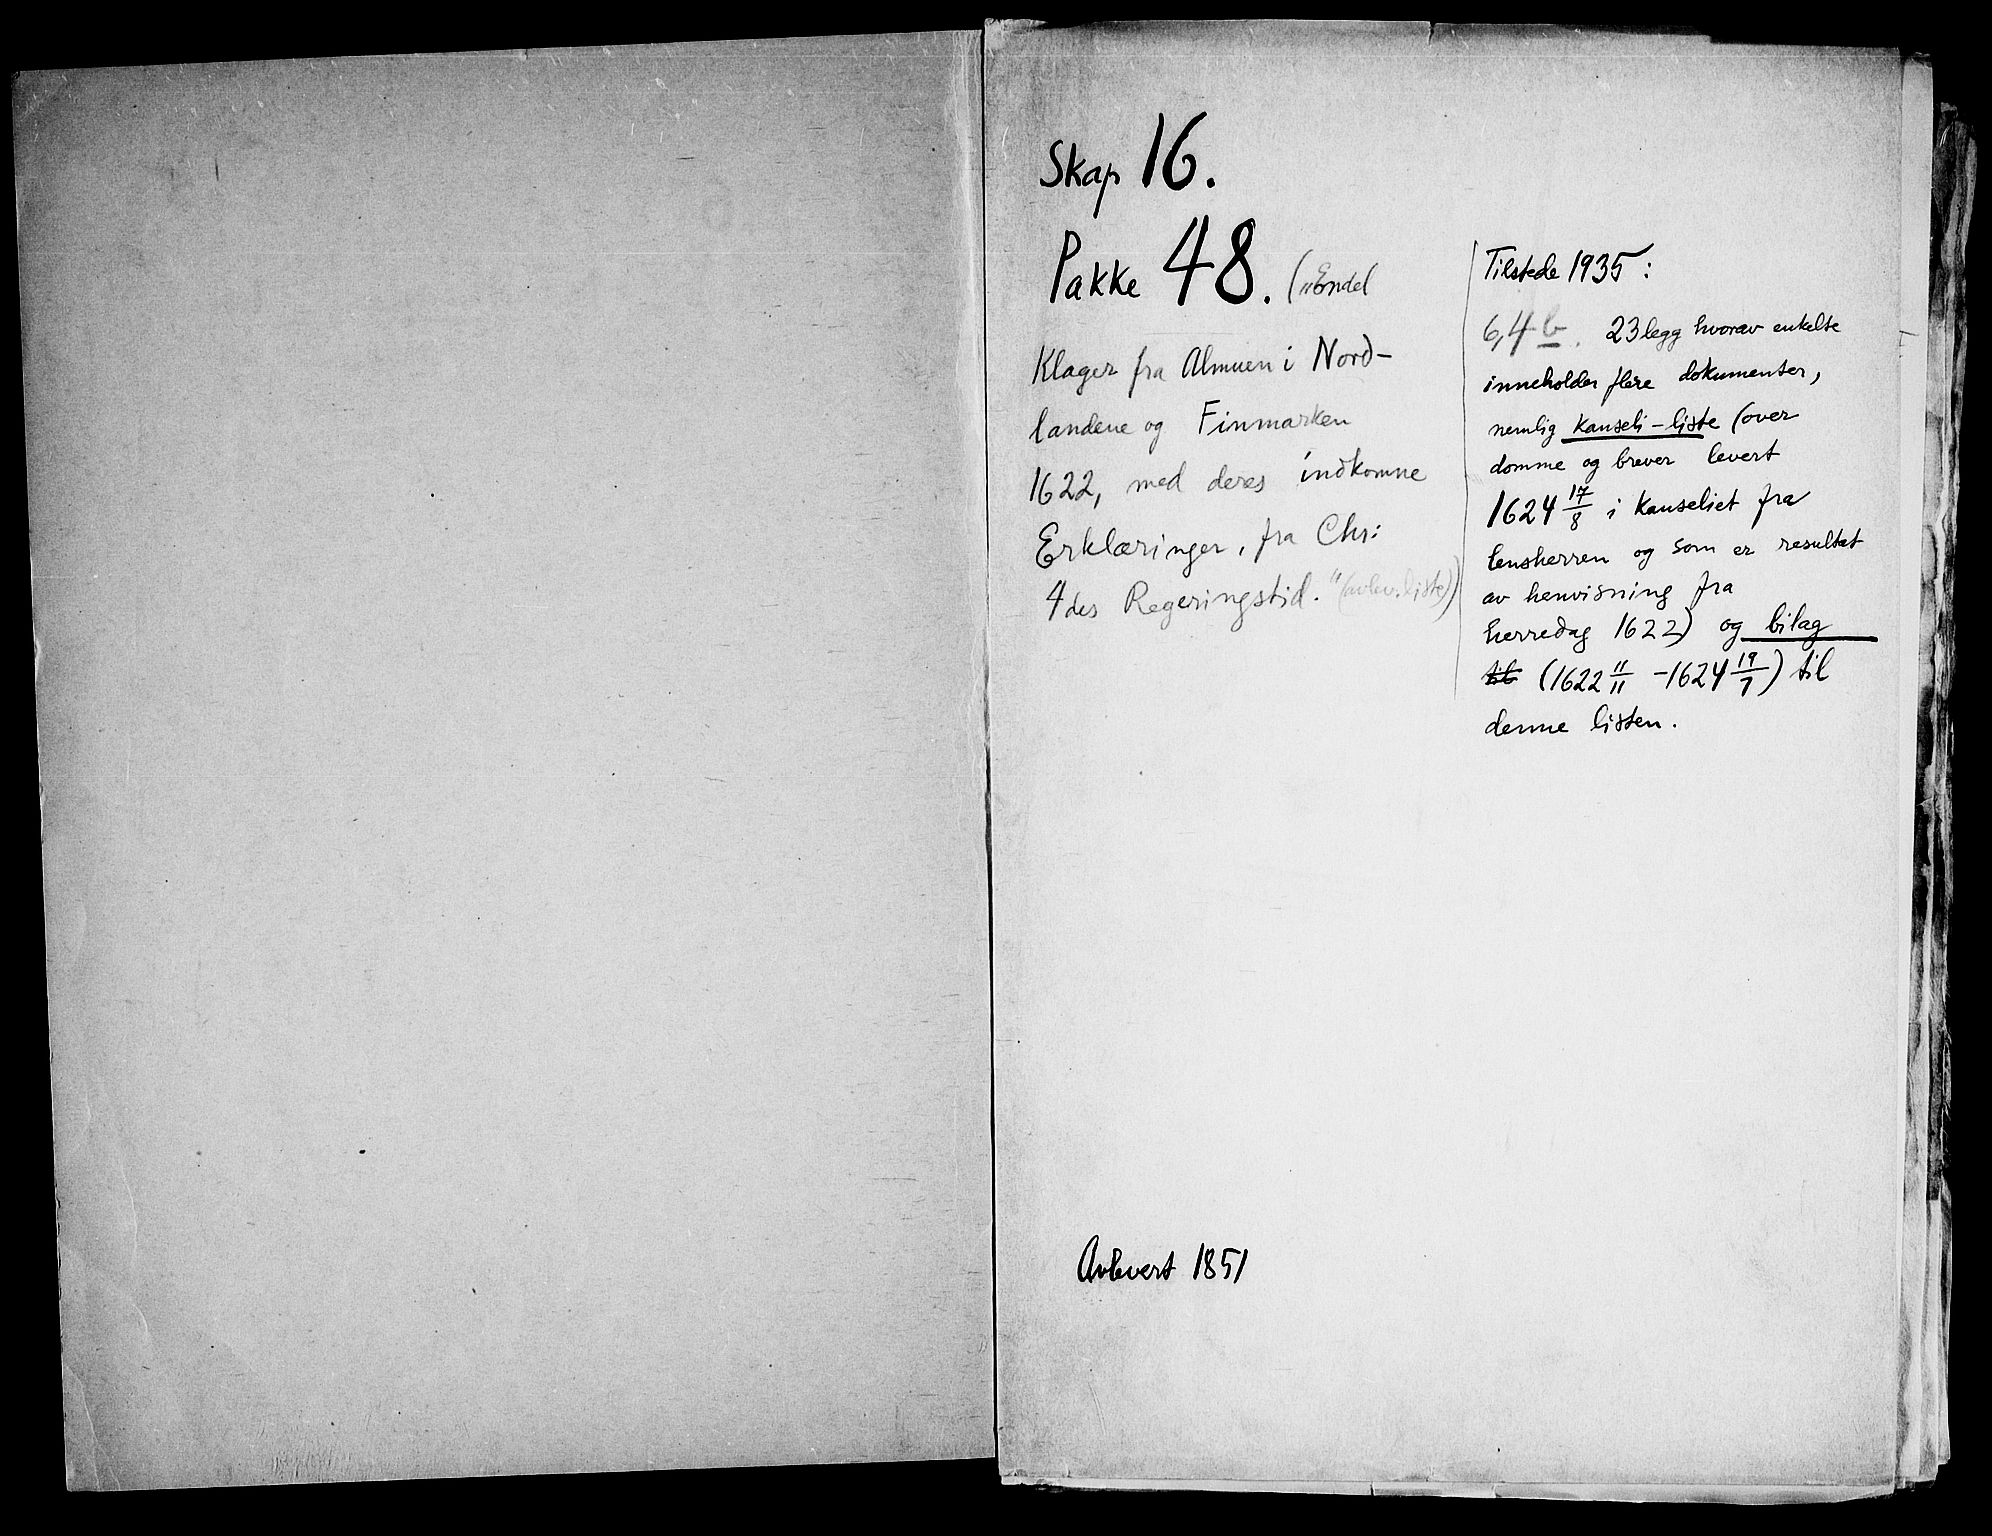 Skap 16.
Pakke 48. („Endel
Klager fra Almuen i Nord-
landene og Finmarken
1622, med deres indkomne
Erklæringer, fra Chr:
4des Regeringstid." (avlev. liste))
Tilstede 1935:
6,4 b. 23 legg hvorav enkelte
inneholder flere dokumenter,
nemlig kanseli-liste (over
domme og brever levert
1624 17/8 i kanseliet fra
lensherren og som er resultat
av henvisning fra
herredag 1622) og bilag
til (1622 11/11 - 1624 19/7) til
denne listen.
Avlevert 1851